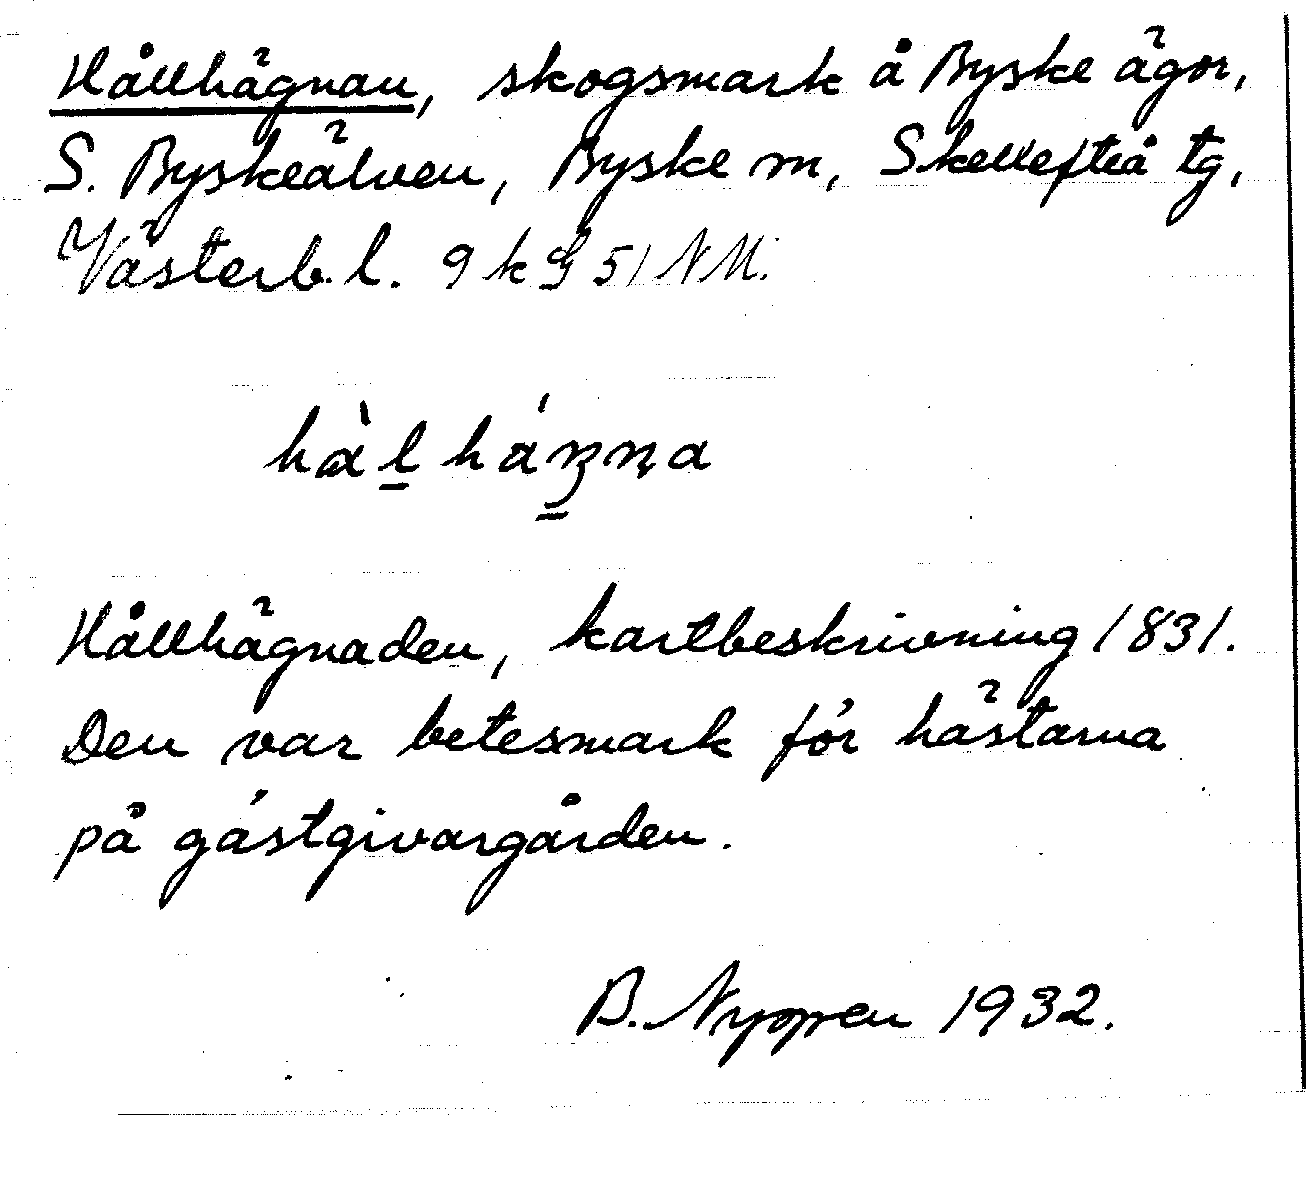 Hållhägnan, skogsmark å Byske ägor,
S. Byskeälven, Byske sn, Skellefteå tg,
Västerb. l. 9 k G 51 NM.
Hållhägnaden, kartbeskrivning 1831.
Den var betesmark för hästarna
på gästgivargården.
B. Nyppen 1932.